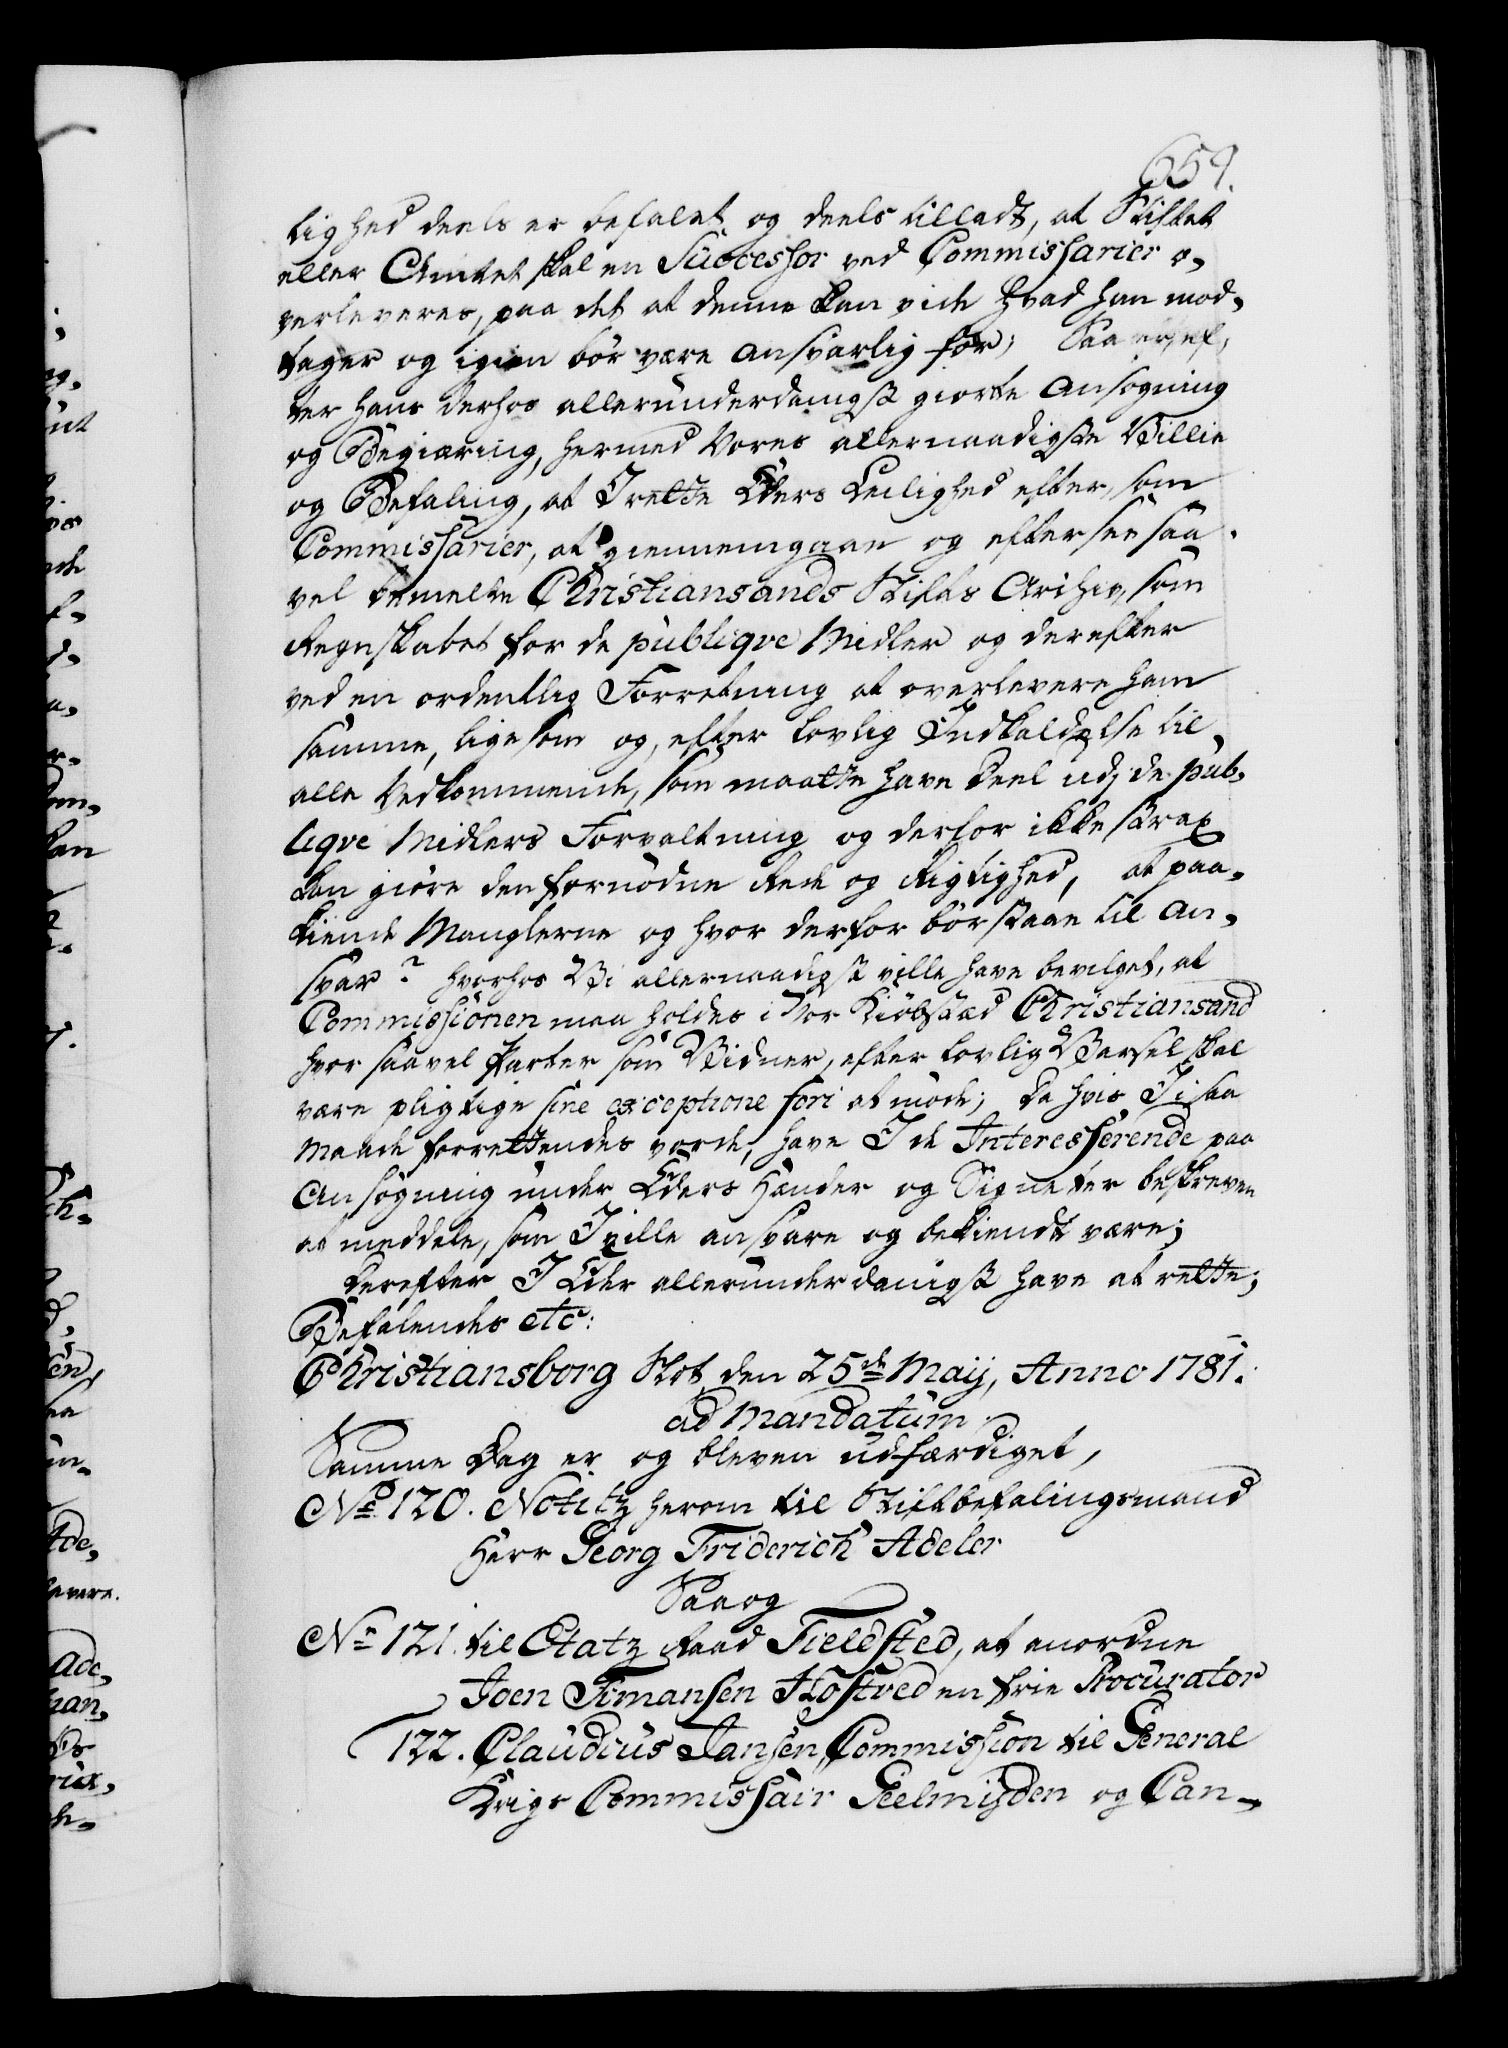 659.
lighed deels er befalet og deels tilladt, at Stiftet
eller Amtet skal en Successor ved Commissarier o-
verleveres, paa det at denne kan vide hvad han mod-
tager og igien bør være ansvarlig for; Saa er, ef-
ter hans derhos allerunderdanigst giorte Ansøgning
og Begiæring, hermed Vores allernaadigste Villie
og Befaling, at I rette Eders Leilighed efter, som
Commissarier, at giennemgaae og eftersee saa-
vel bemelte Christiansands Stifts Archiv, som
Regnskabet for de publiqve Midler og derefter
ved en ordentlig Forretning at overlevere ham
samme, ligesom og, efter lovlig Indkaldelse til
alle Vedkommende, som maatte have Deel udj de pub-
liqve Midlers Forvaltning og derfor ikke strax
kan giøre den fornødne Rede og Rigtighed, at paa-
kiende Manglerne og hvor derfor bør staae til An-
svar? hvorhos Vi allernaadigst ville have bevilget, at
Commissionen maa holdes i Vor Kiøbstæd Christiansand
hvor saavel Parter som Vidner, efter lovlig Varsel skal
være pligtige sine exceptione fori at møde; Da hvis I i saa
Maade forrettendes vorde, have I de Interesserende paa
Ansøgning under Eders Hænder og Signeter beskreven
at meddele, som I ville ansvare og bekiendt være;
Derefter I Eder allerunderdanigst have at rette;
Befalendes etc:
Christiansborg Slot den 25de Maij, Anno 1781.
ad Mandatum
Samme Dag er og bleven udfærdiget,
No 120. Notitz herom til Stiftbefalingsmand
Herr Georg Friderich Adeler
Saa og
No 121. til Etatz Raad Fieldsted, at anordne
Joen Simansen Flostved en frie Procurator
122. Claudius Jansen, Commission til General
Krigs Commissair Geelmijden og Can-